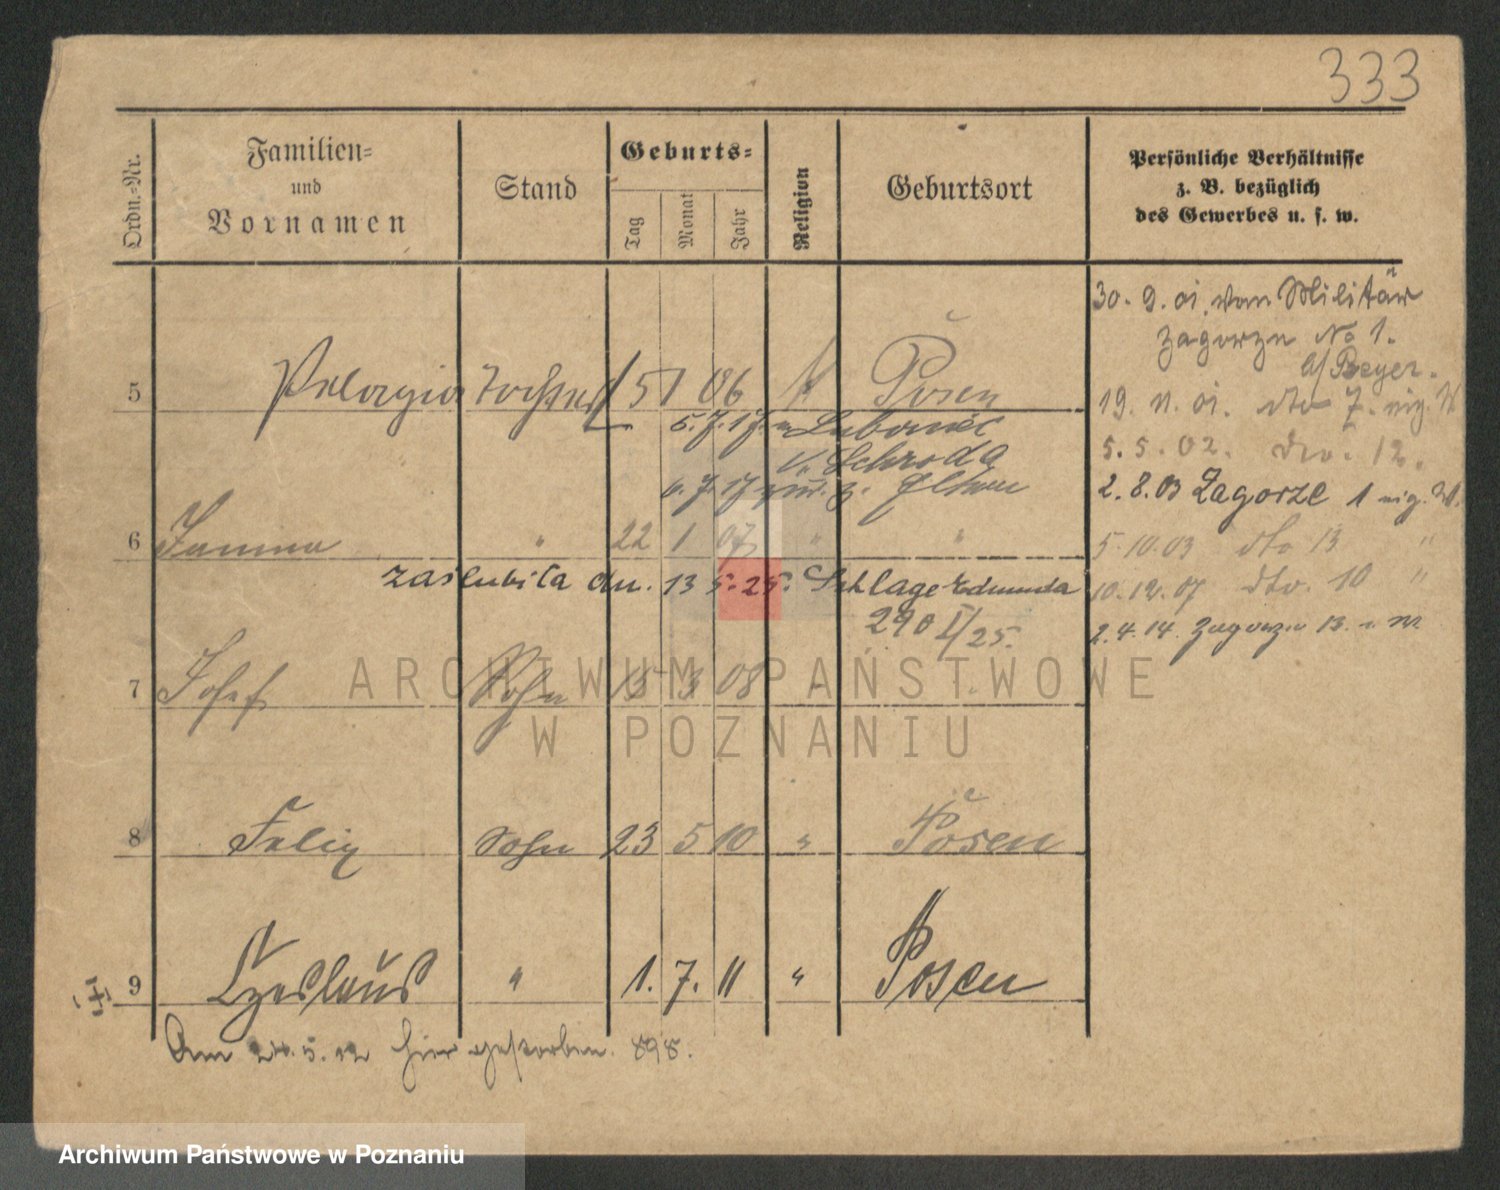 333
Ordn.-Nr.
Familien-
und
Vornamen
Stand
Geburts-
Tag
Monat
Jahr
Religion
Geburtsort
Persönliche Verhältnisse
z. B. bezüglich
des Gewerbes u. s. w.
30. 9. 01. vom Militär
Zagorze No 1.
b/ Beyer.
5 Pelagia Tochter 5 1 06 Posen
19. 11. 01. dto 7.
5. 7. 17. n
v. Schroda
5. 5. 02. dto. 12.
6. 7. 17 z.
2. 8. 03 Zagorze 1
6 " 22 1 07 " "
5. 10. 03 dto 13 "
zaślubiła dn. 13 5. 25. Schlage Edmunda
10. 12. 07 dto. 10 "
290 I/25.
2. 4. 14. Zagorze 13.
7 Josef Sohn 15 3 08
8 Felix Sohn 23 5 10 " Posen
9 Czeslaus " 1. 7. 11 " Posen
Am 24. 5. 12 hier gestorben. 898.
ARCHIWUM PAŃSTWOWE
W POZNANIU
Archiwum Państwowe w Poznaniu